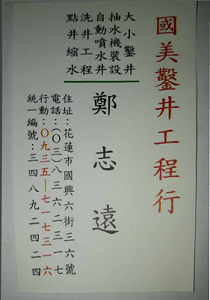 國美鑿井工程行
大小鑿井
抽水機裝設
自動噴水井
洗井工程
點井縮水
鄭志遠
住址：花蓮市國興六街三六號
電話：（〇三）八三六二三一七
行動：〇九三五—七一七三一六
統一編號：三四八九二四二四